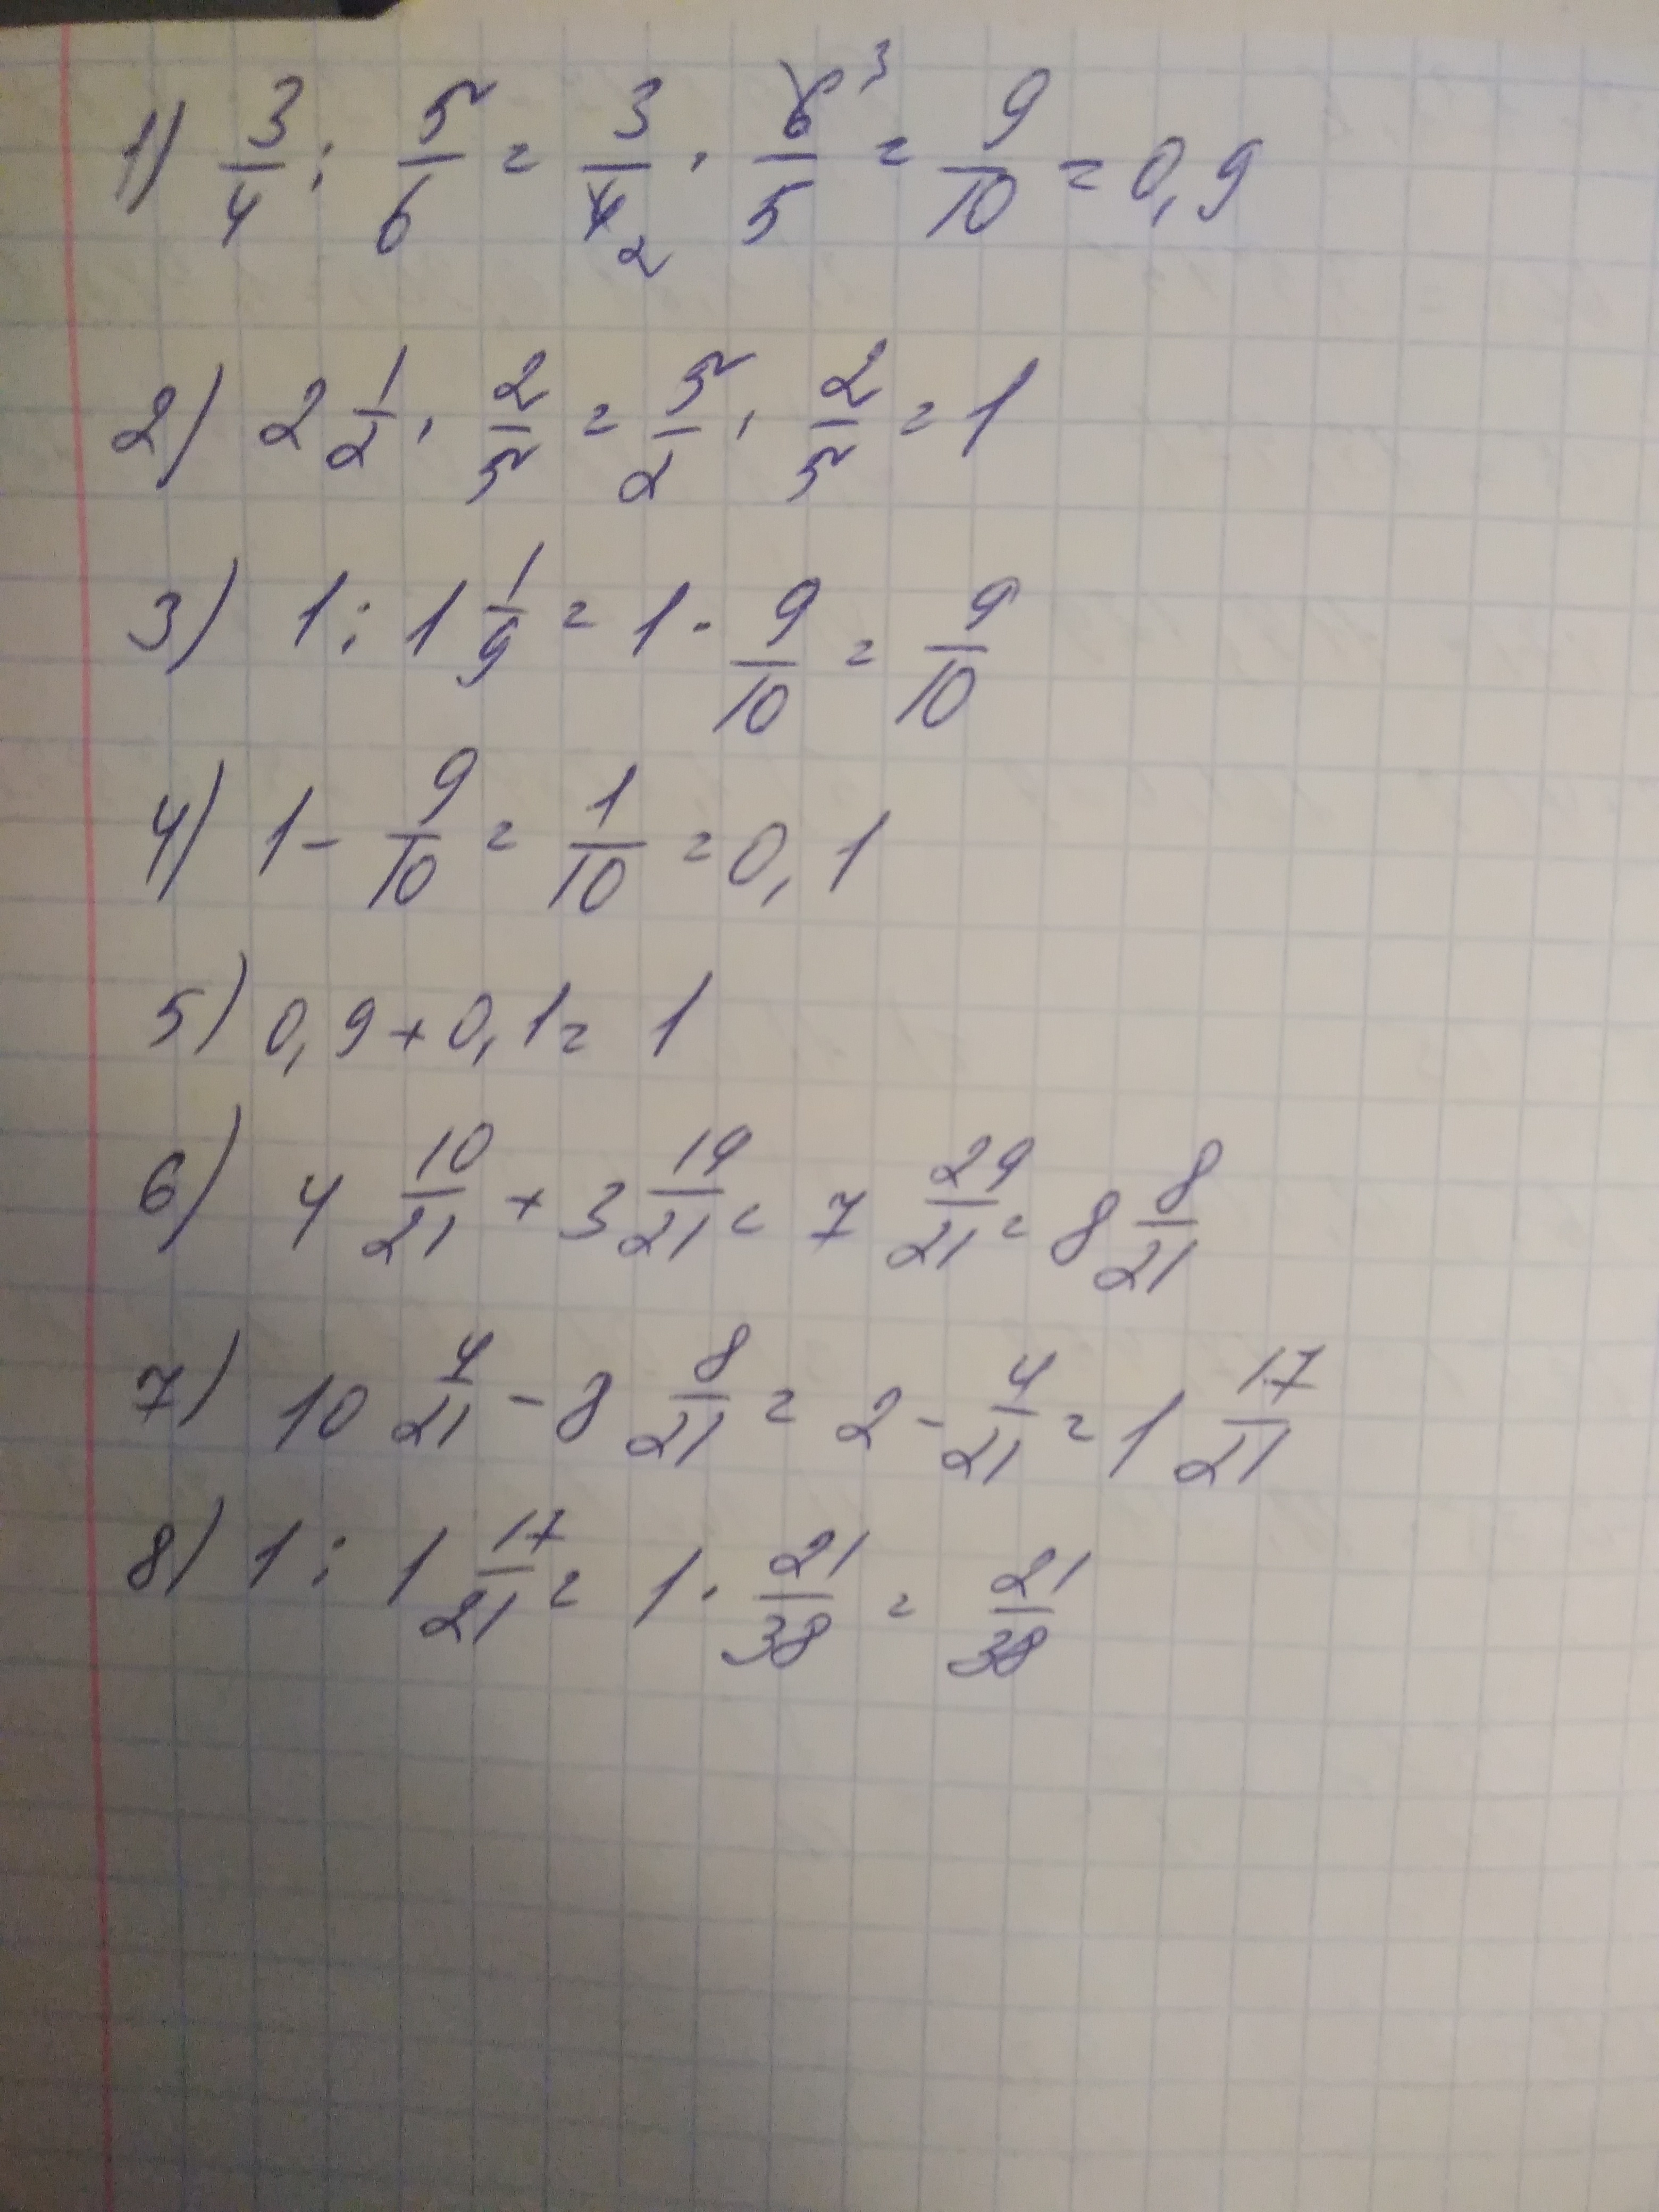 1) 3/4 : 5/6 = 3/4 2 · 6 3/5 = 9/10 = 0,9
2) 2 1/2 · 2/5 = 5/2 · 2/5 = 1
3) 1 : 1 1/9 = 1 · 9/10 = 9/10
4) 1 - 9/10 = 1/10 = 0,1
5) 0,9 + 0,1 = 1
6) 4 10/21 + 3 19/21 = 7 29/21 = 8 8/21
7) 10 4/21 - 8 8/21 = 2 - 4/21 = 1 17/21
8) 1 : 1 17/21 = 1 · 21/38 = 21/38